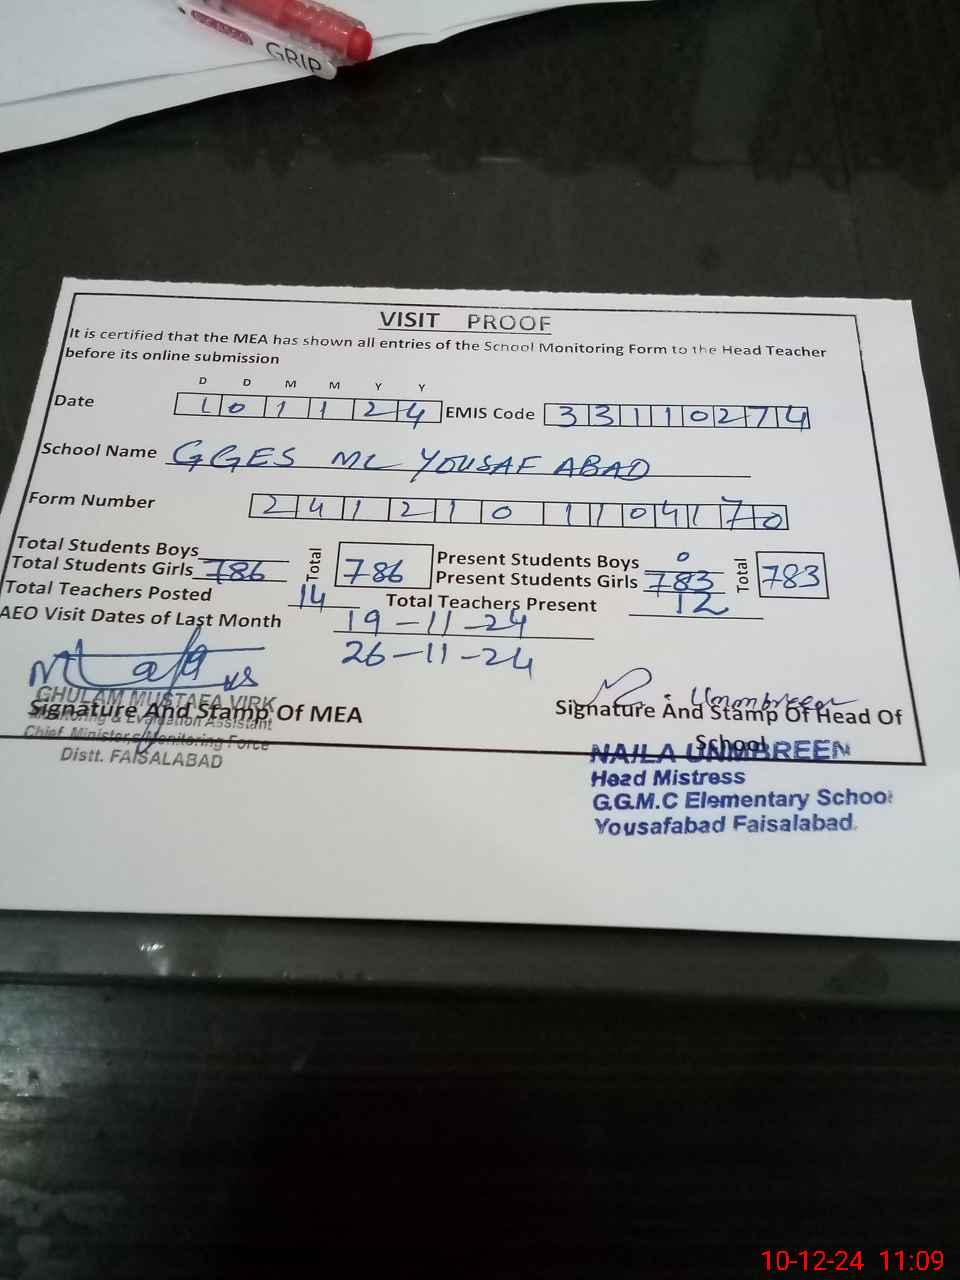 GRIP
VISIT PROOF
It is certified that the MEA has shown all entries of the School Monitoring Form to the Head Teacher
before its online submission
D D M M Y Y
Date 1 0 1 1 2 4 EMIS Code 3 3 1 1 0 2 7 4
School Name GGES MC YOUSAF ABAD
Form Number 2 4 1 2 1 0 1 1 0 4 1 7 0
Total Students Boys
Total Students Girls 786 Total 786
Present Students Boys 0
Present Students Girls 783 Total 783
Total Teachers Posted 14 Total Teachers Present 12
AEO Visit Dates of Last Month 19-11-24
26-11-24
GHULAM MUSTAFA VIRK
Signature And Stamp Of MEA
Monitoring & Evaluation Assistant
Chief Minister's Monitoring Force
Distt. FAISALABAD
Unmbreen
Signature And Stamp Of Head Of
School
NAILA UNMBREEN
Head Mistress
G.G.M.C Elementary School
Yousafabad Faisalabad.
10-12-24 11:09